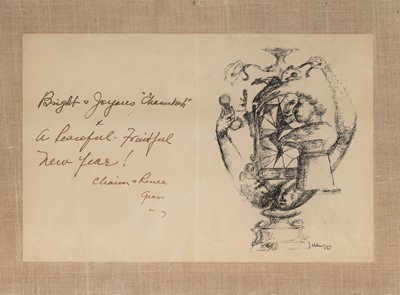 Bright & Joyous "Channukah"
&
A Peaceful - Fruitful
New Year!
Chaim & Renee
Gross